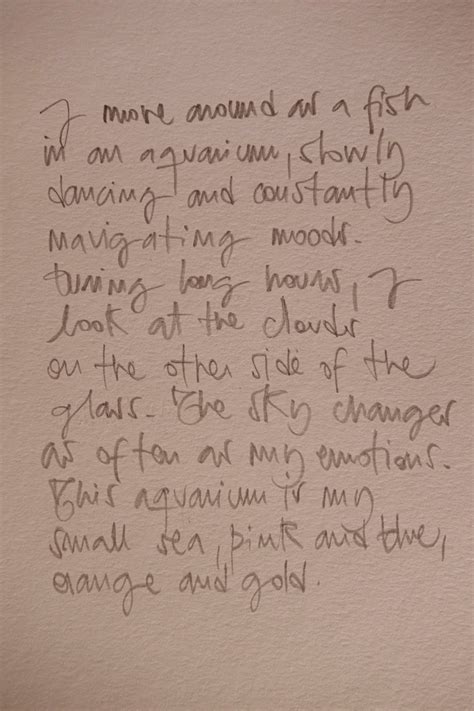 I move around as a fish
in an aquarium, slowly
dancing and constantly
navigating moods.
During long hours, I
look at the clouds
on the other side of the
glass. The sky changes
as often as my emotions.
This aquarium is my
small sea, pink and blue,
orange and gold.